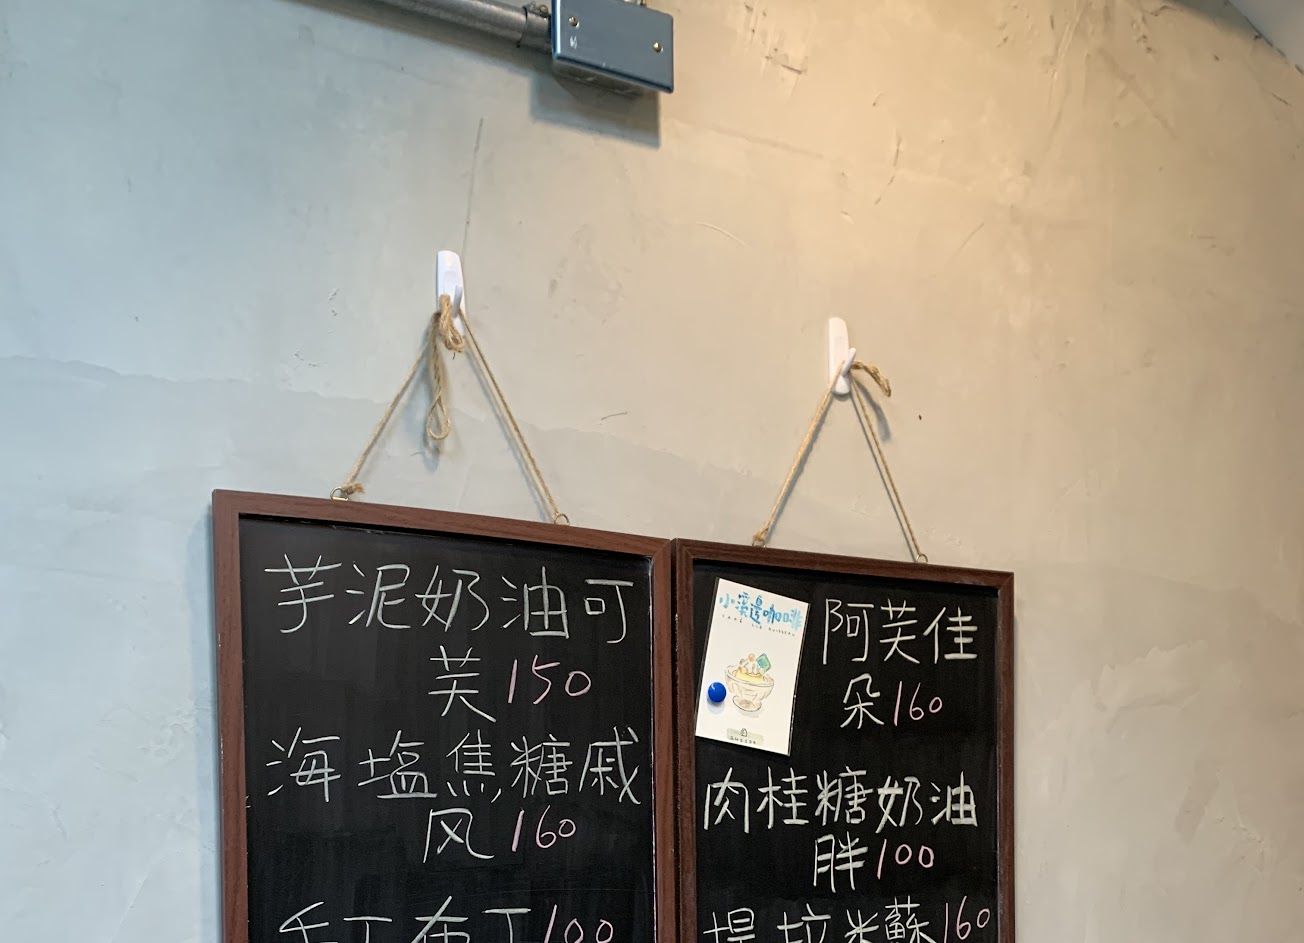 芋泥奶油可
芙150
海塩焦糖戚
风160
手工布丁100
小溪邊咖啡
阿芙佳
朵160
肉桂糖奶油
胖100
提拉米蘇160